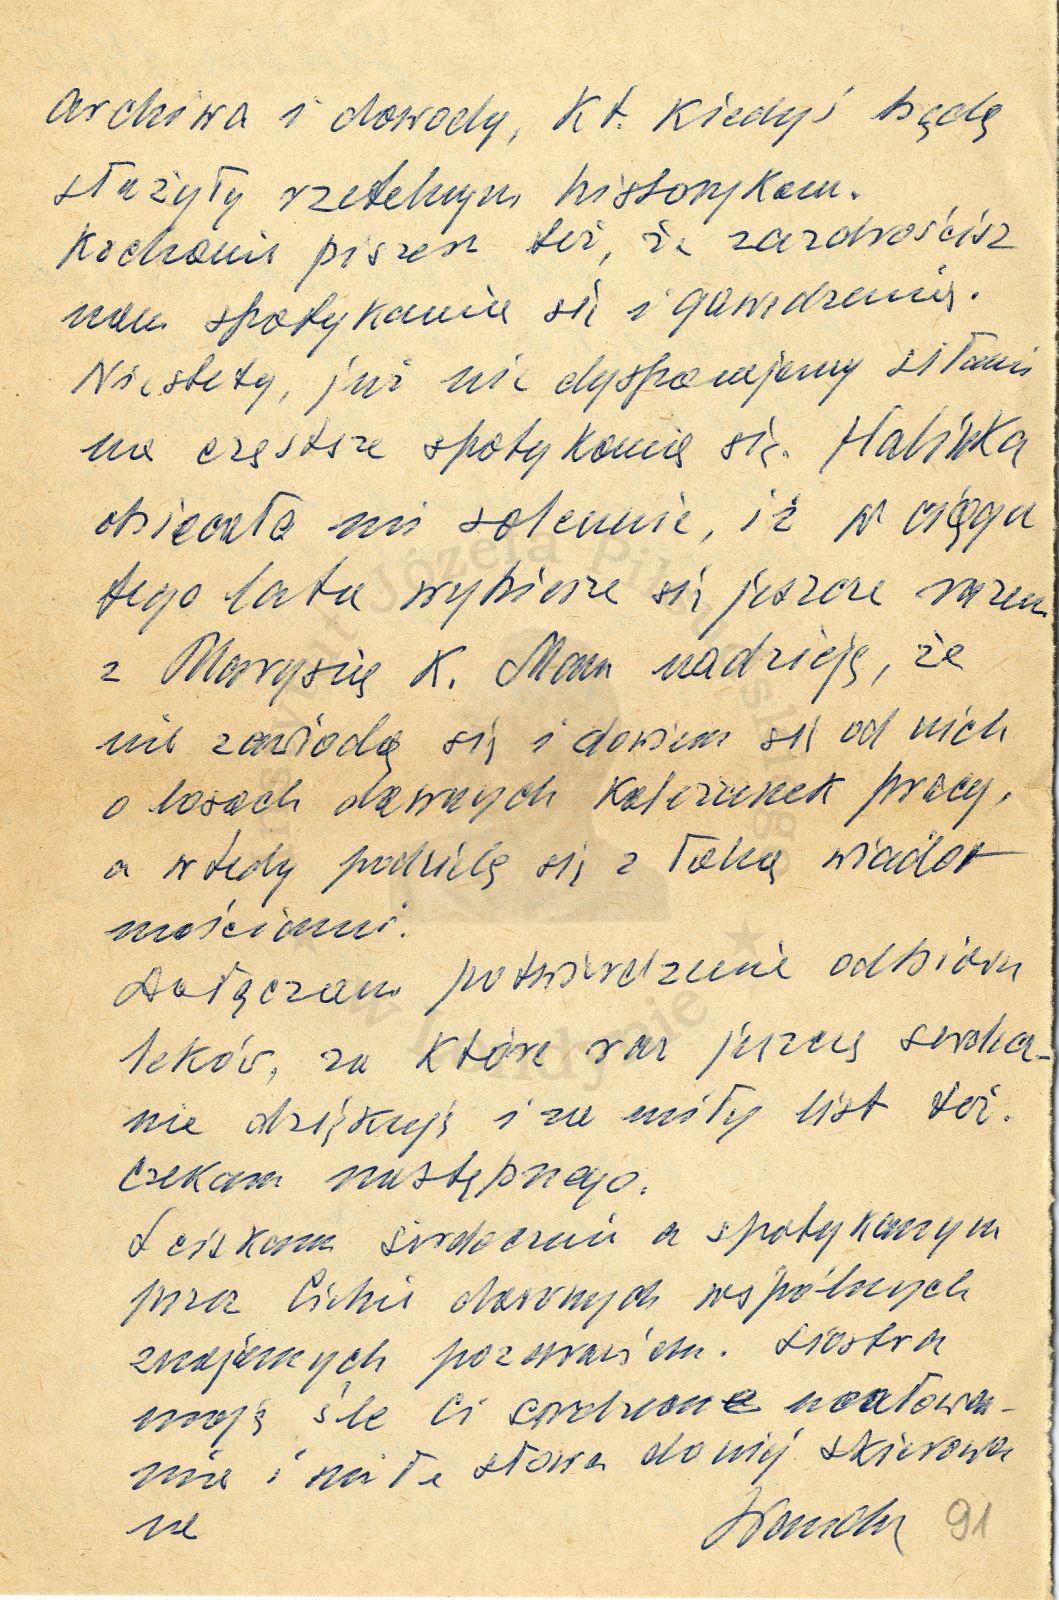 archiwa i dowody, kt. kiedyś będą
służyły rzetelnym historykom.
Kochanie piszesz też, że zazdrościsz
nam spotykania się i gawędzenia.
Niestety, już nie dysponujemy siłami
na częstsze spotykania się. Halinka
obiecała mi solennie, iż w ciągu
tego lata wybierze się jeszcze razem
z Marysią K. Mam nadzieję, że
nie zawiodą się i dowiem się od nich
o losach dawnych koleżanek pracy,
a wtedy podzielę się z Tobą wiado-
mościami.
Dołączam potwierdzenie odbioru
leków, za które raz jeszcze serdecz-
nie dziękuję i za miły list też.
Czekam następnego.
Ściskam serdecznie a spotykanym
przez Ciebie dawnych wspólnych
znajomych pozdrawiam. Siostra
moja śle Ci serdeczne ucałowa-
nia i miłe słowa do niej skierowa
ne
Wanda 91
Józefa Piłsudskiego
w Londynie